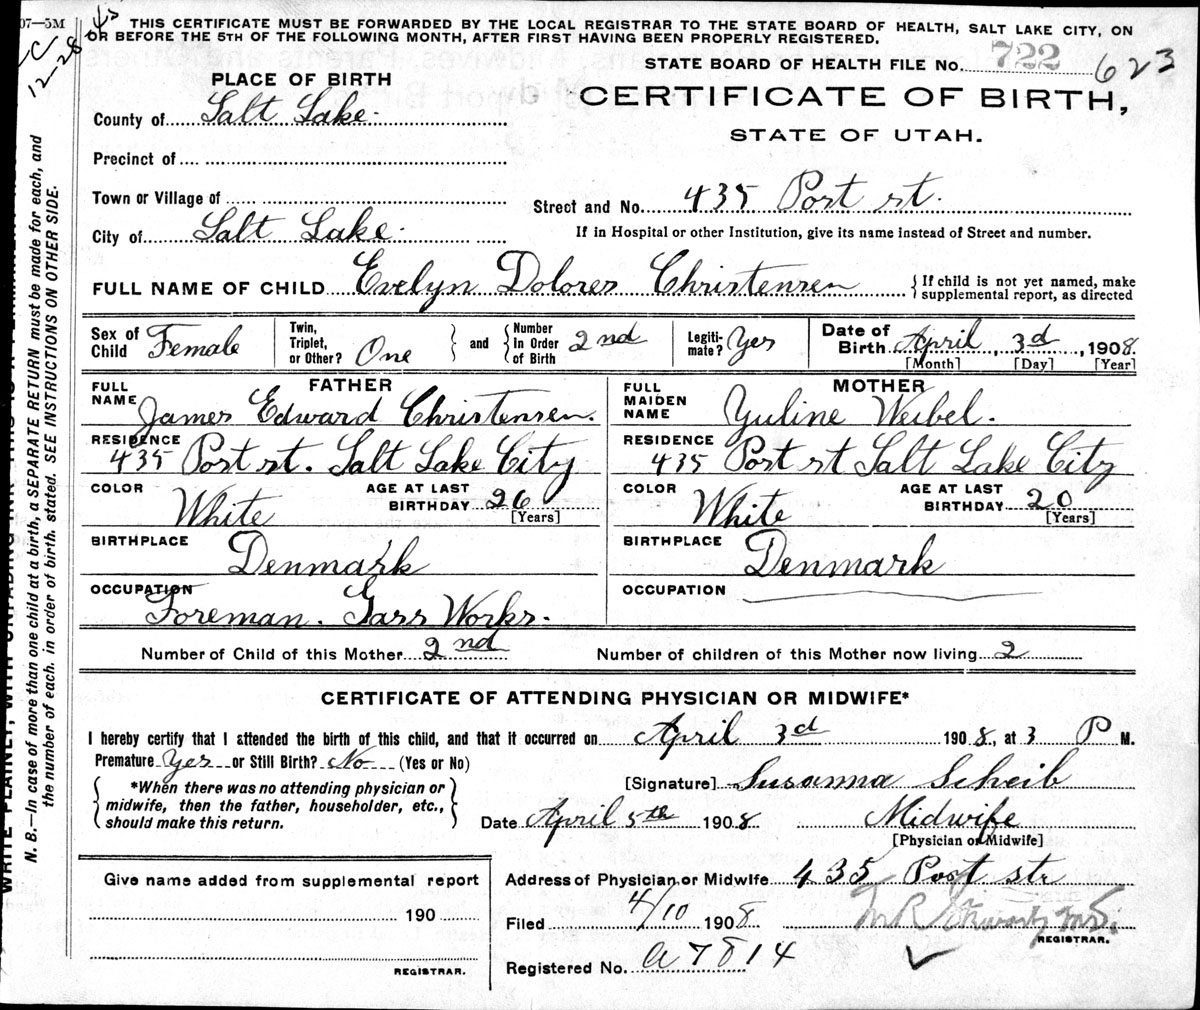 07—5M
C
12-28
THIS CERTIFICATE MUST BE FORWARDED BY THE LOCAL REGISTRAR TO THE STATE BOARD OF HEALTH, SALT LAKE CITY, ON
OR BEFORE THE 5TH OF THE FOLLOWING MONTH, AFTER FIRST HAVING BEEN PROPERLY REGISTERED.
STATE BOARD OF HEALTH FILE No. 722 623
PLACE OF BIRTH
CERTIFICATE OF BIRTH,
STATE OF UTAH.
County of Salt Lake.
Precinct of
Town or Village of
Street and No. 435 Post st.
City of Salt Lake.
If in Hospital or other Institution, give its name instead of Street and number.
FULL NAME OF CHILD Evelyn Dolores Christensen { If child is not yet named, make
supplemental report, as directed
Sex of Child Female
Twin, Triplet, or Other? One } and { Number In Order of Birth 2nd
Legiti-mate? Yes
Date of Birth April, 3d, 1908.
[Month] [Day] [Year]
FATHER
FULL NAME James Edward Christensen.
RESIDENCE 435 Post st. Salt Lake City
COLOR White
AGE AT LAST BIRTHDAY 26 [Years]
BIRTHPLACE Denmark
OCCUPATION Foreman. Gass Works.
MOTHER
FULL MAIDEN NAME Yuline Weibel.
RESIDENCE 435 Post st Salt Lake City
COLOR White
AGE AT LAST BIRTHDAY 20 [Years]
BIRTHPLACE Denmark
OCCUPATION
Number of Child of this Mother 2nd
Number of children of this Mother now living 2
CERTIFICATE OF ATTENDING PHYSICIAN OR MIDWIFE*
I hereby certify that I attended the birth of this child, and that it occurred on April 3d 1908, at 3 P M.
Premature Yes or Still Birth? No (Yes or No)
{ *When there was no attending physician or
midwife, then the father, householder, etc.,
should make this return. }
[Signature] Susanna Scheib
Date April 5th 1908 Midwife
[Physician or Midwife]
Give name added from supplemental report
190
REGISTRAR.
Address of Physician or Midwife 435 Post str
Filed 4/10 1908
REGISTRAR.
Registered No. a7814
N. B.—In case of more than one child at a birth, a SEPARATE RETURN must be made for each, and
the number of each, in order of birth, stated. SEE INSTRUCTIONS ON OTHER SIDE.